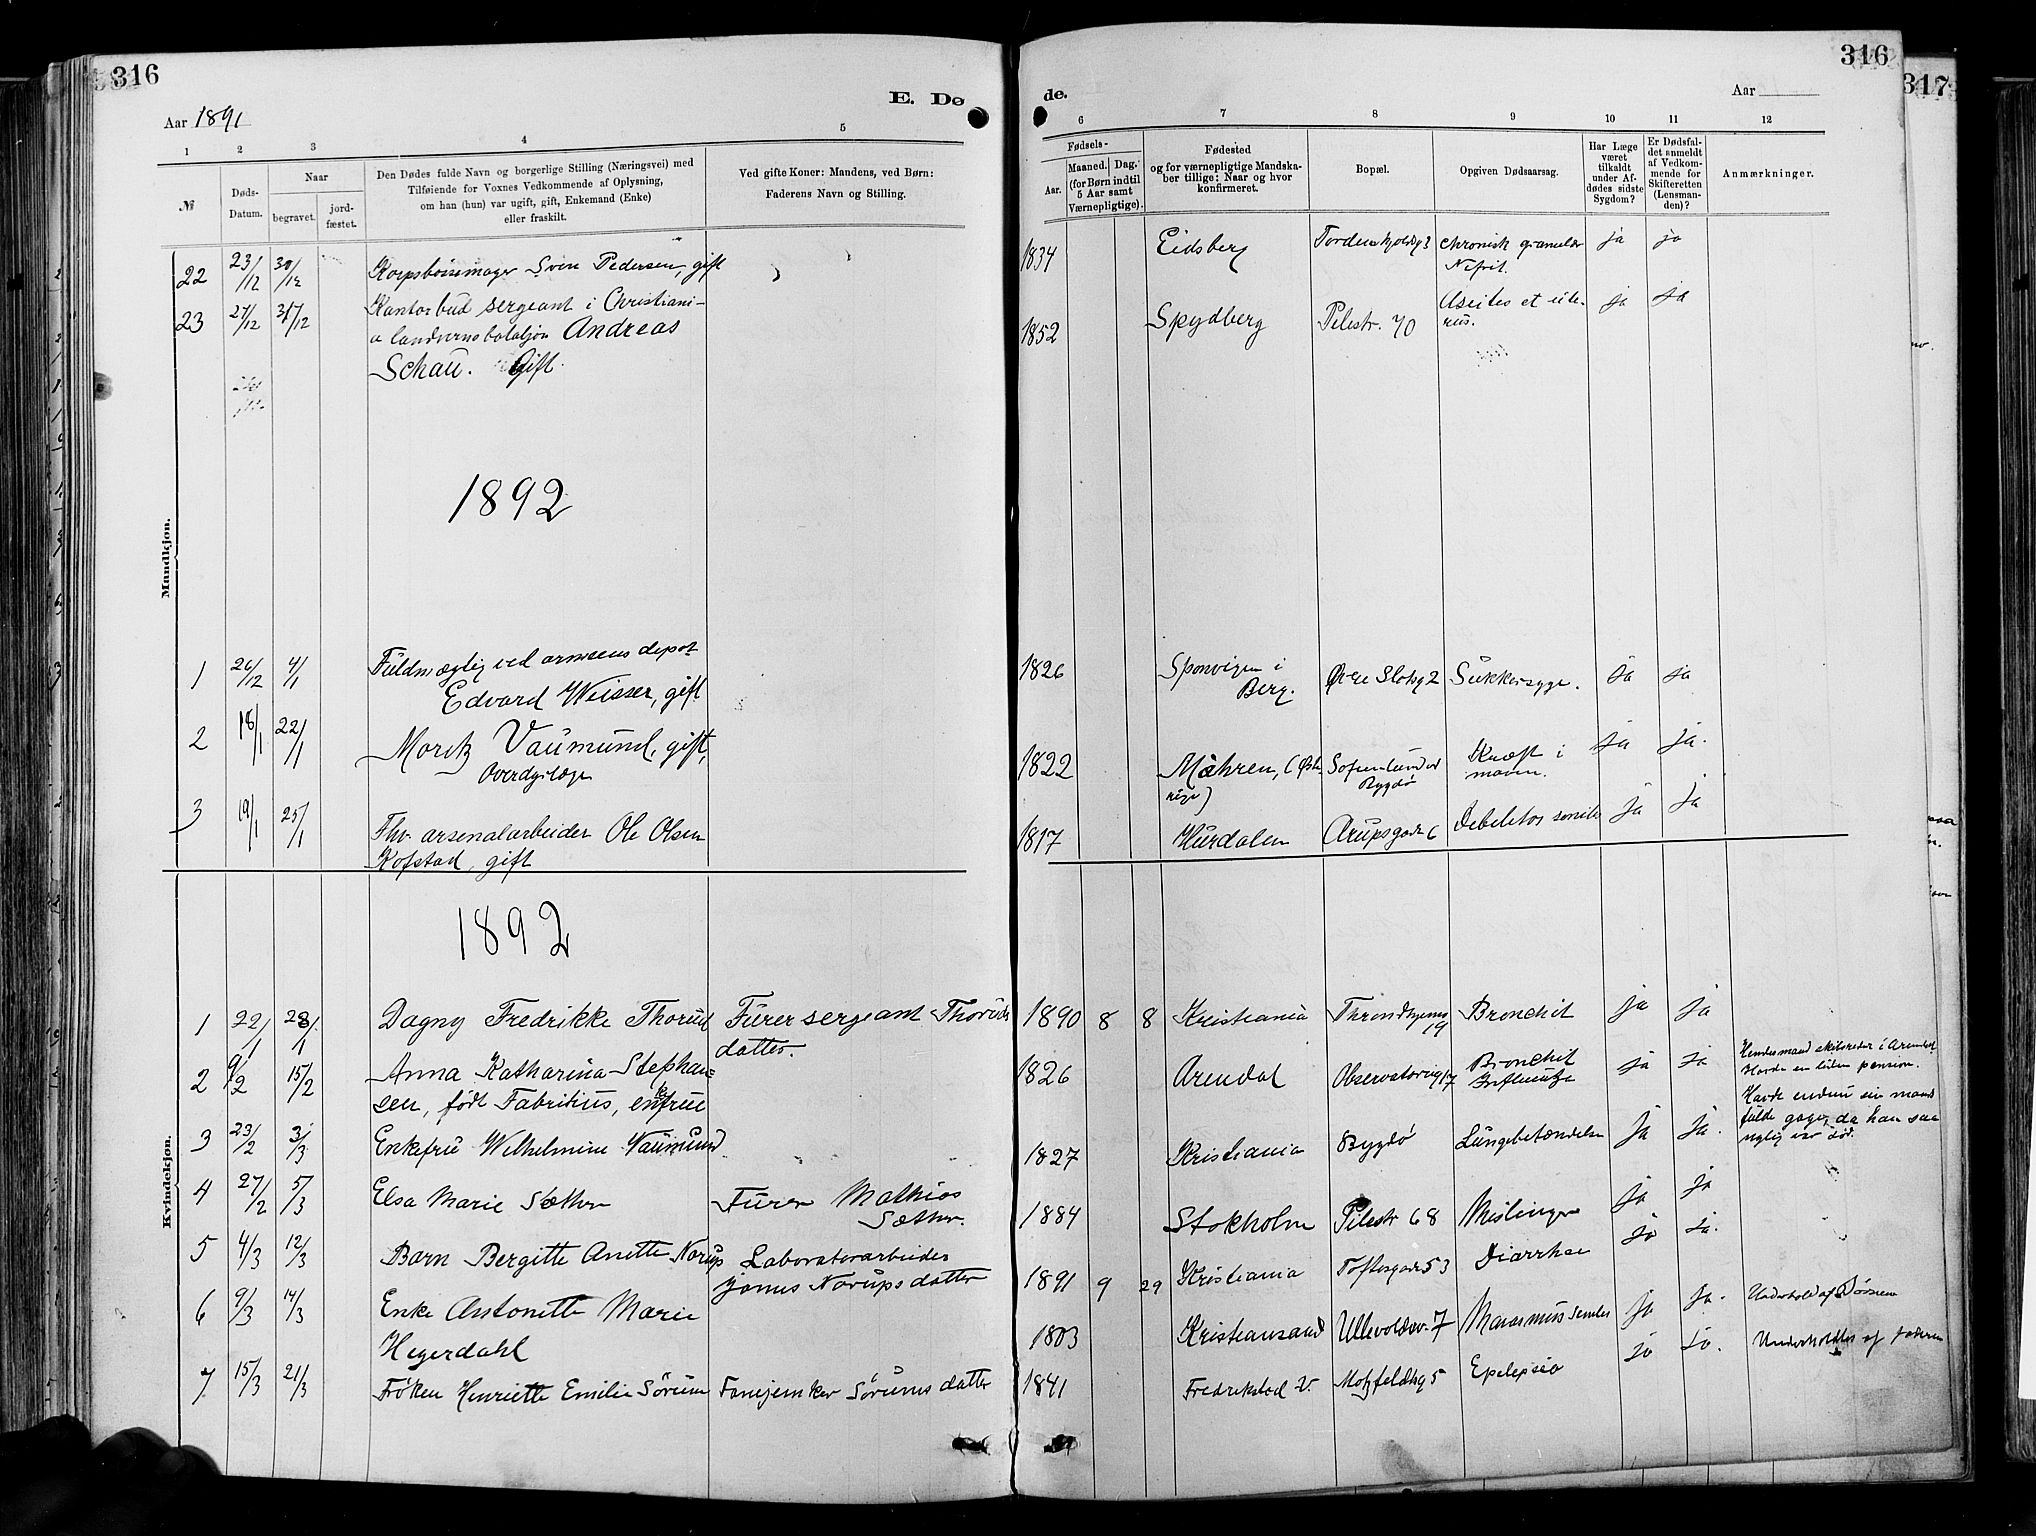 316
316
317
E. Dø
de.
Aar 1891
Aar
1 2 3 4 5 6 7 8 9 10 11 12
№
Døds-
Datum.
Naar
begravet.
jord-
fæstet.
Den Dødes fulde Navn og borgerlige Stilling (Næringsvei) med
Tilføiende for Voxnes Vedkommende af Oplysning,
om han (hun) var ugift, gift, Enkemand (Enke)
eller fraskilt.
Ved gifte Koner: Mandens, ved Børn:
Faderens Navn og Stilling.
Fødsels-
Aar.
Maaned. Dag.
(for Børn indtil
5 Aar samt
Værnepligtige).
Fødested
og for værnepligtige Mandska-
ber tillige: Naar og hvor
konfirmeret.
Bopæl.
Opgiven Dødsaarsag.
Har Læge
været
tilkaldt
under Af-
dødes sidste
Sygdom?
Er Dødsfal-
det anmeldt
af Vedkom-
mende for
Skifteretten
(Lensman-
den)?
Anmærkninger.
Mandkjøn.
22 23/12 30/12 Korpsbøsemager Sven Pedersen, gift 1834 Eidsberg chronisk granulær ja ja
Nefrit.
23 27/12 31/12 Kantorbud sergeant i Christiani-
a landvernsbataljon Andreas 1852 Spydberg Pilestr. 70 Ascites et icte- ja ja
rus.
Schau. Gift.
1892
1 26/12 4/1 Fuldmægtig ved armeens depot
Edvard Weisser, gift 1826 Sponvigen i Sukkersyge. ja ja
Berg.
2 18/1 22/1 Moritz Vaumund, gift, 1822 Mähren, (Øst- Kræft i ja ja.
rige) Bygdø maven.
3 19/1 25/1 Fhv. arsenalarbeider Ole Olsen 1817 Hurdalen Arupsgade 6 ja ja
Kofstad, gift
Kvindekjøn.
1892
1 22/1 28/1 Dagny Fredrikke Thorud Furer sergeant Thoruds 1890 8 8 Kristiania Throndhjems Bronchit ja ja
datter. 19
2 9/2 15/2 Anna Katharina Stephan= 1826 Arendal Observatorieg 17 Bronchit ja ja
Influentze
sen, født Fabritius, enkefrue
Hendes mand skibsreder i Arendal
Havde en liden pension.
3 23/2 3/3 Enkefru Wilhelmine Naumund 1827 Kristiania Bygdø Lungebetændelse ja ja.
Havde endnu sin mands
fulde gage, da han saa
nylig var død.
4 27/2 5/3 Elsa Marie Sæther Furer Mathias 1884 Stokholm Pilestr 68 Mislinger ja ja
Sæther.
5 4/3 12/3 Barn Bergitte Anette Norup Laboratorarbeider 1891 9 29 Kristiania Toftesgade 53 Diarrhæ ja ja.
Jonus Norups datter
6 9/3 14/3 Enke Antonette Marie 1803 Kristiansand Ullevoldsv. 7 Marasmus senilis ja ja.
Hegerdahl
7 15/3 21/3 Frøken Henriette Emilie Sørum Fanejunker Sørums datter 1841 Fredrikstad V. Motzfeldtsg 5 Epelepsia ja ja. Underholdtes af faderen